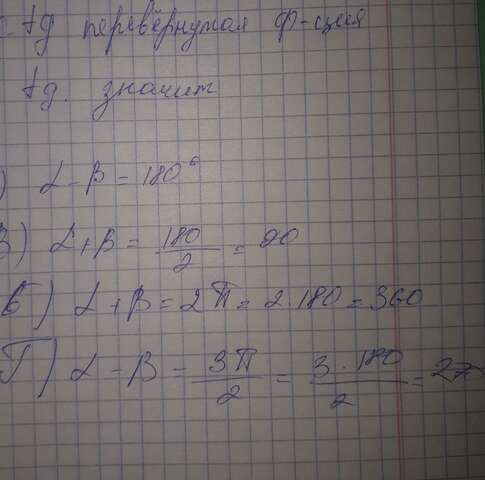 tg перевёрнутая ф-ция
tg. значит
) α - β = 180°
В) α + β = 180/2 = 90
Б) α + β = 2π = 2.180 = 360
Г) α - β = 3π/2 = 3.180/2 = 270